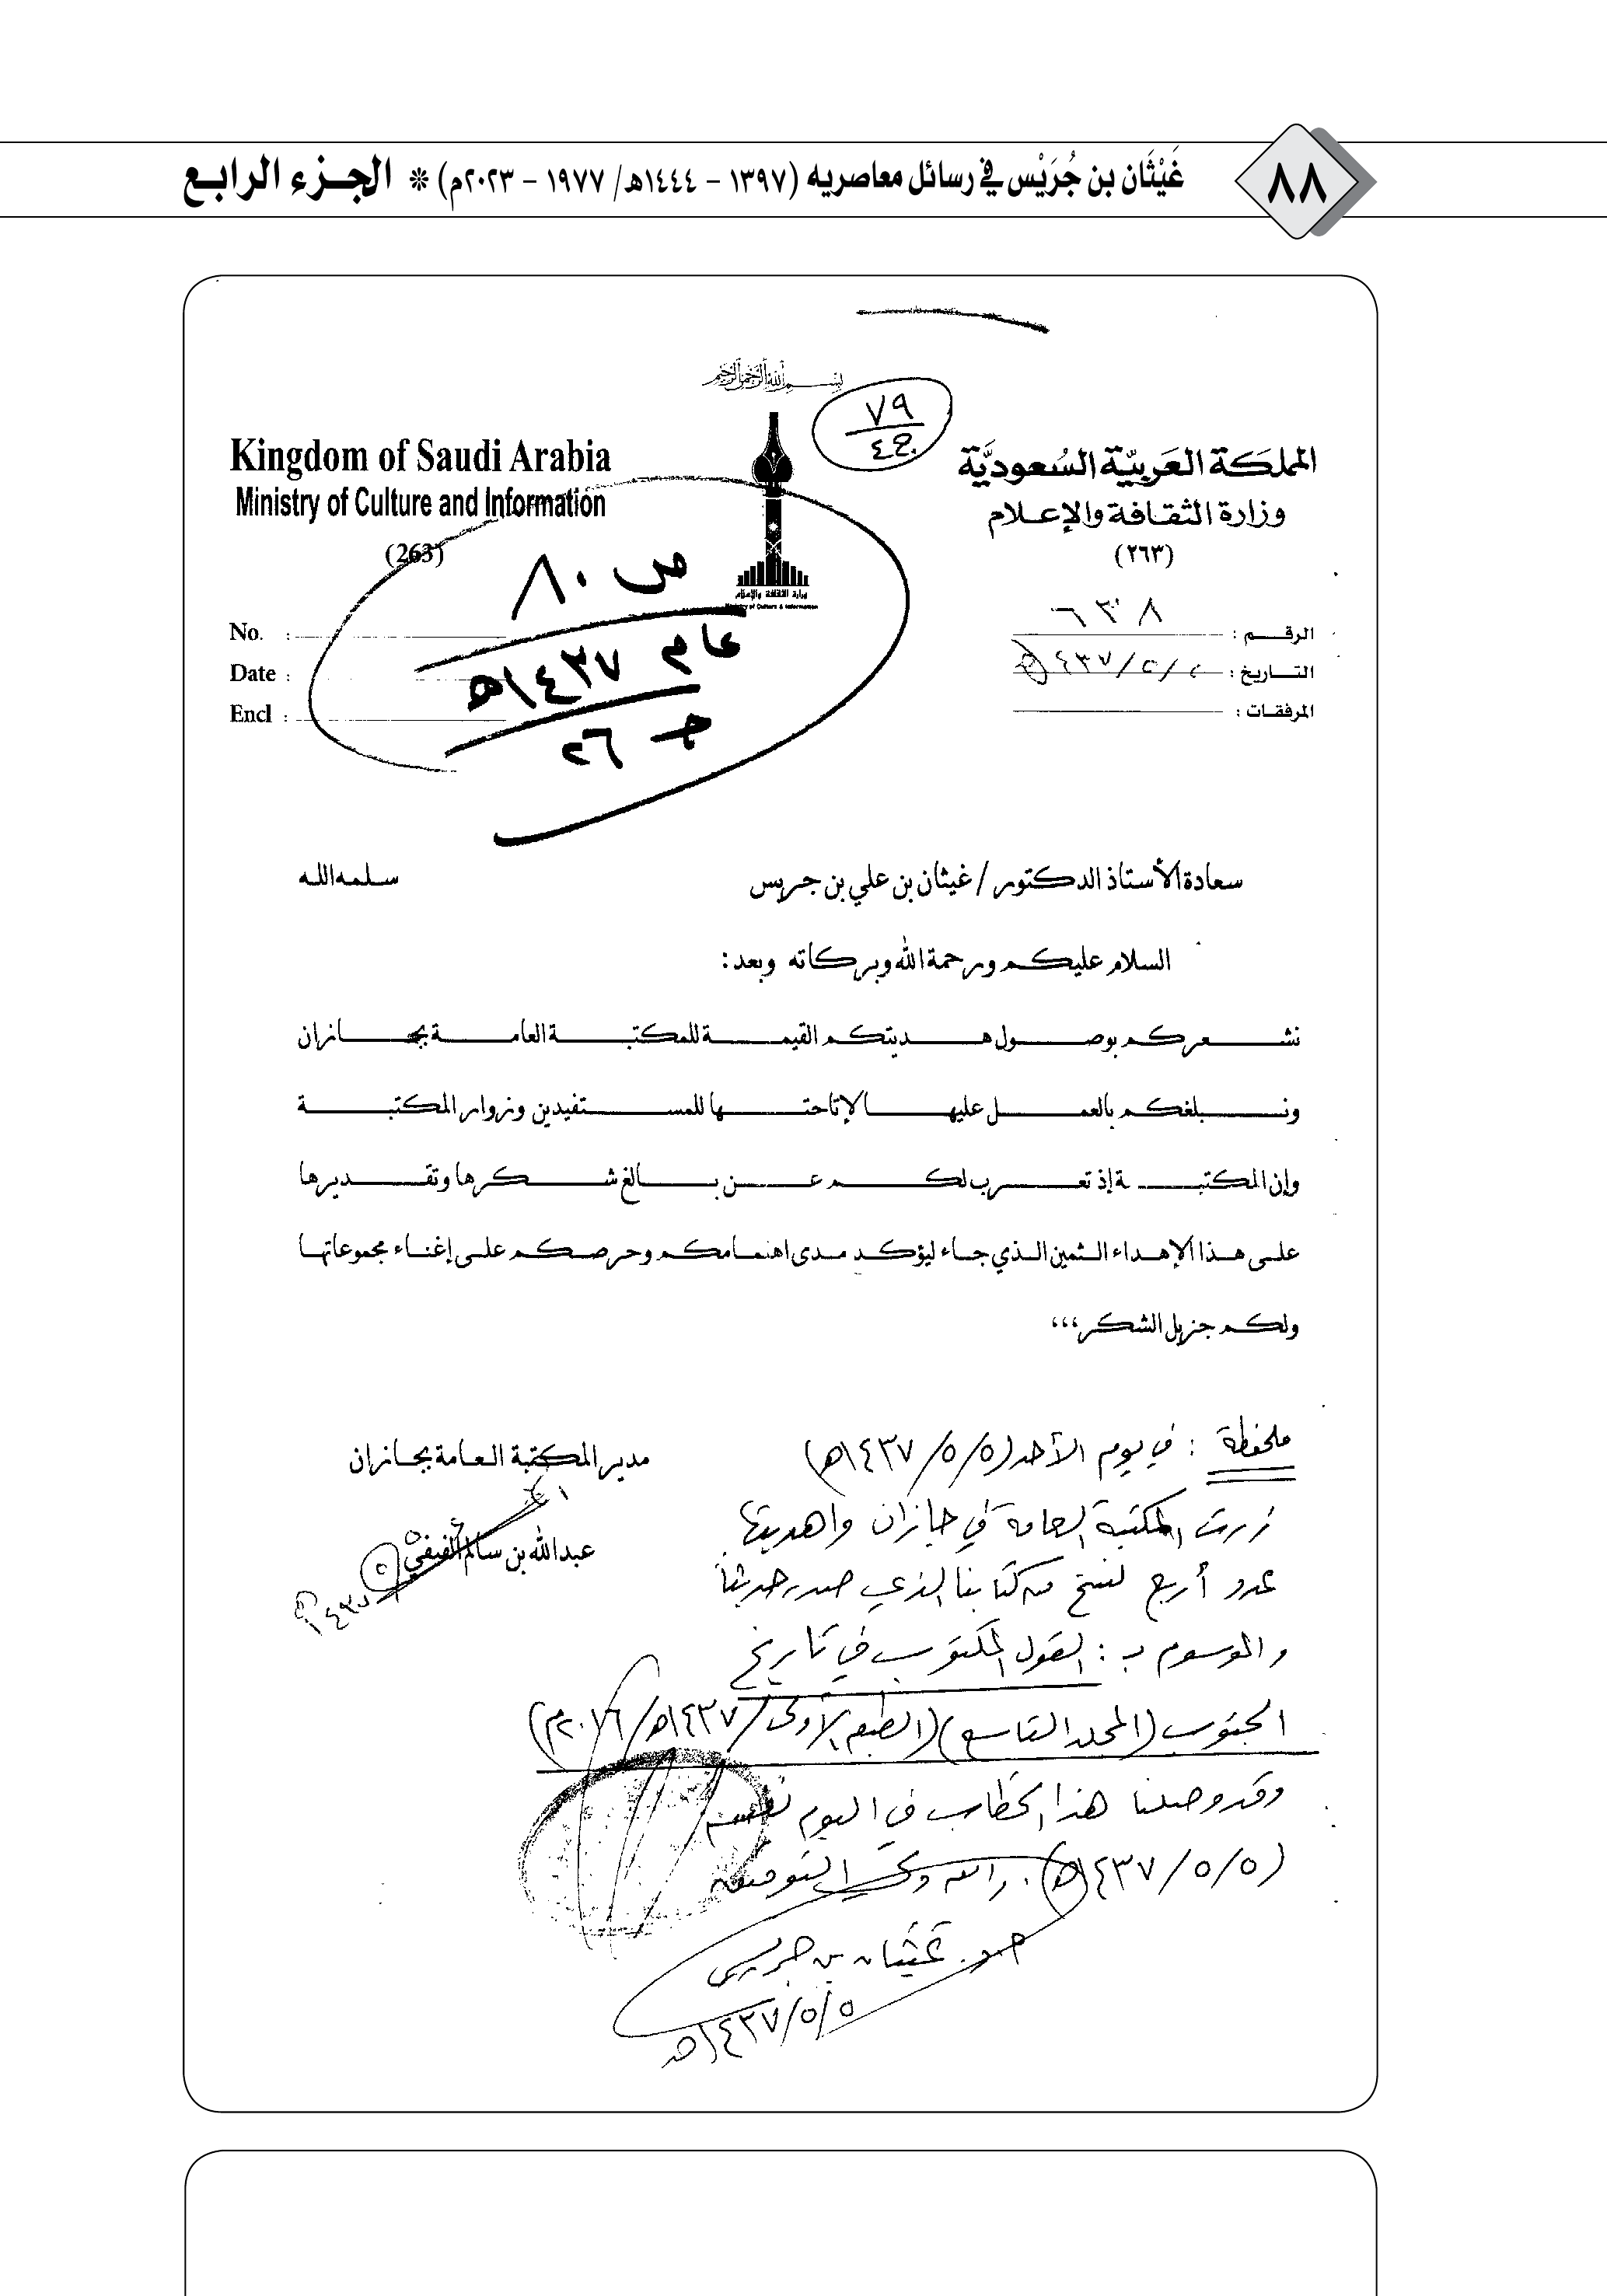 ٨٨
غَيْثَان بن جُرَيْس في رسائل معاصريه (١٣٩٧ - ١٤٤٤هـ/ ١٩٧٧ - ٢٠٢٣م) * الجزء الرابع
بسم الله الرحمن الرحيم
٧٩
ج٤
المملكة العربية السعودية
وزارة الثقافة والإعلام
(٢٦٣)
Kingdom of Saudi Arabia
Ministry of Culture and Information
(263)
وزارة الثقافة والإعلام
Ministry of Culture & Information
الرقم : ٦٣٨
التاريخ :
المرفقات :
No. :
Date :
Encl :
ص ٨٠
عام ١٤٣٧هـ
ج ٢٦
سعادة الأستاذ الدكتور / غيثان بن علي بن جريس سلمه الله
السلام عليكم ورحمة الله وبركاته وبعد :
نشعركم بوصول هديتكم القيمة للمكتبة العامة بجازان
ونبلغكم بالعمل عليها لإتاحتها للمستفيدين وزوار المكتبة
وإن المكتبة إذ تعرب لكم عن بالغ شكرها وتقديرها
على هذا الإهداء الثمين الذي جاء ليؤكد مدى اهتمامكم وحرصكم على إغناء مجموعاتها
ولكم جزيل الشكر،،،
مدير المكتبة العامة بجازان
عبدالله بن سالم الفيفي
ملحظة : في يوم الأحد (٥/٥/١٤٣٧هـ)
زرت المكتبة العامة في جازان واهديتها
عدد أربع نسخ من كتابنا الذي صدر حديثاً
والموسوم بـ : القول المكتوب في تاريخ
الجنوب (المجلد التاسع) (الطبعة الأولى/ ١٤٣٧هـ/ ٢٠١٦م)
وقد وصلنا هذا الخطاب في اليوم نفسه
(٥/٥/١٤٣٧هـ). والله ولي التوفيق
غيثان بن جريس
٥/٥/١٤٣٧هـ